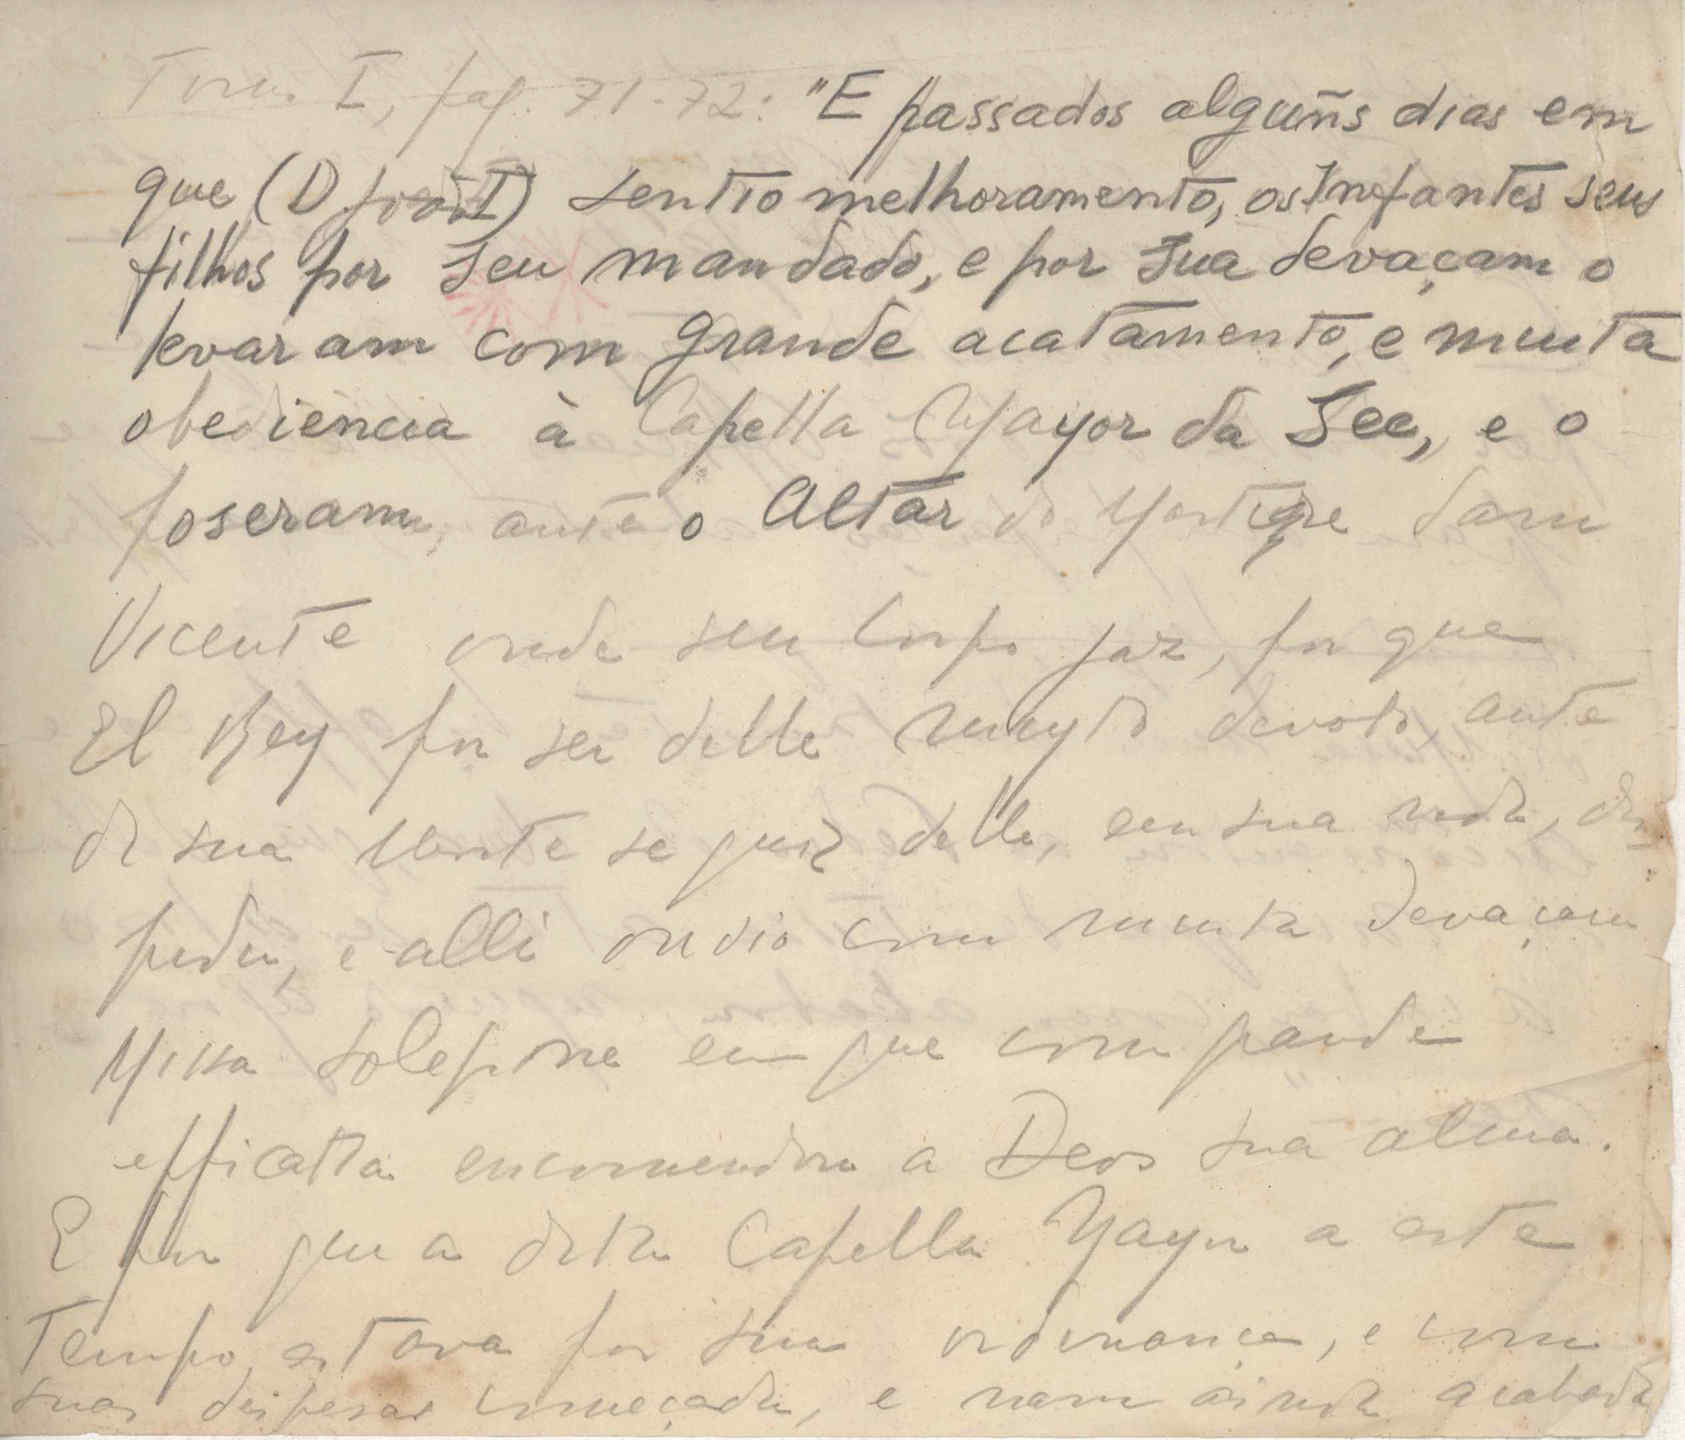 Tomo I, pag. 71-72: "E passados algũns dias em
que (D João I) sentio melhoramento, os Infantes seus
filhos por seu mandado, e por sua devaçam o
levaram com grande acatamento, e muita
obediencia à Capella Mayor da See, e o
poseram, ante o Altar do Martyre Sam
Vicente onde seu corpo jaz, por que
El Rey por ser delle muyto devoto, ante
de sua morte se quiz delle, em sua vida, des-
pedir, e alli ouvio com muita devaçam
Missa solepne em que com grande
efficatia encomendou a Deos sua alma.
E por que a dita Capella Mayor a este
Tempo, estava por sua ordenança, e com
suas despesas começada, e nam ainda acabada